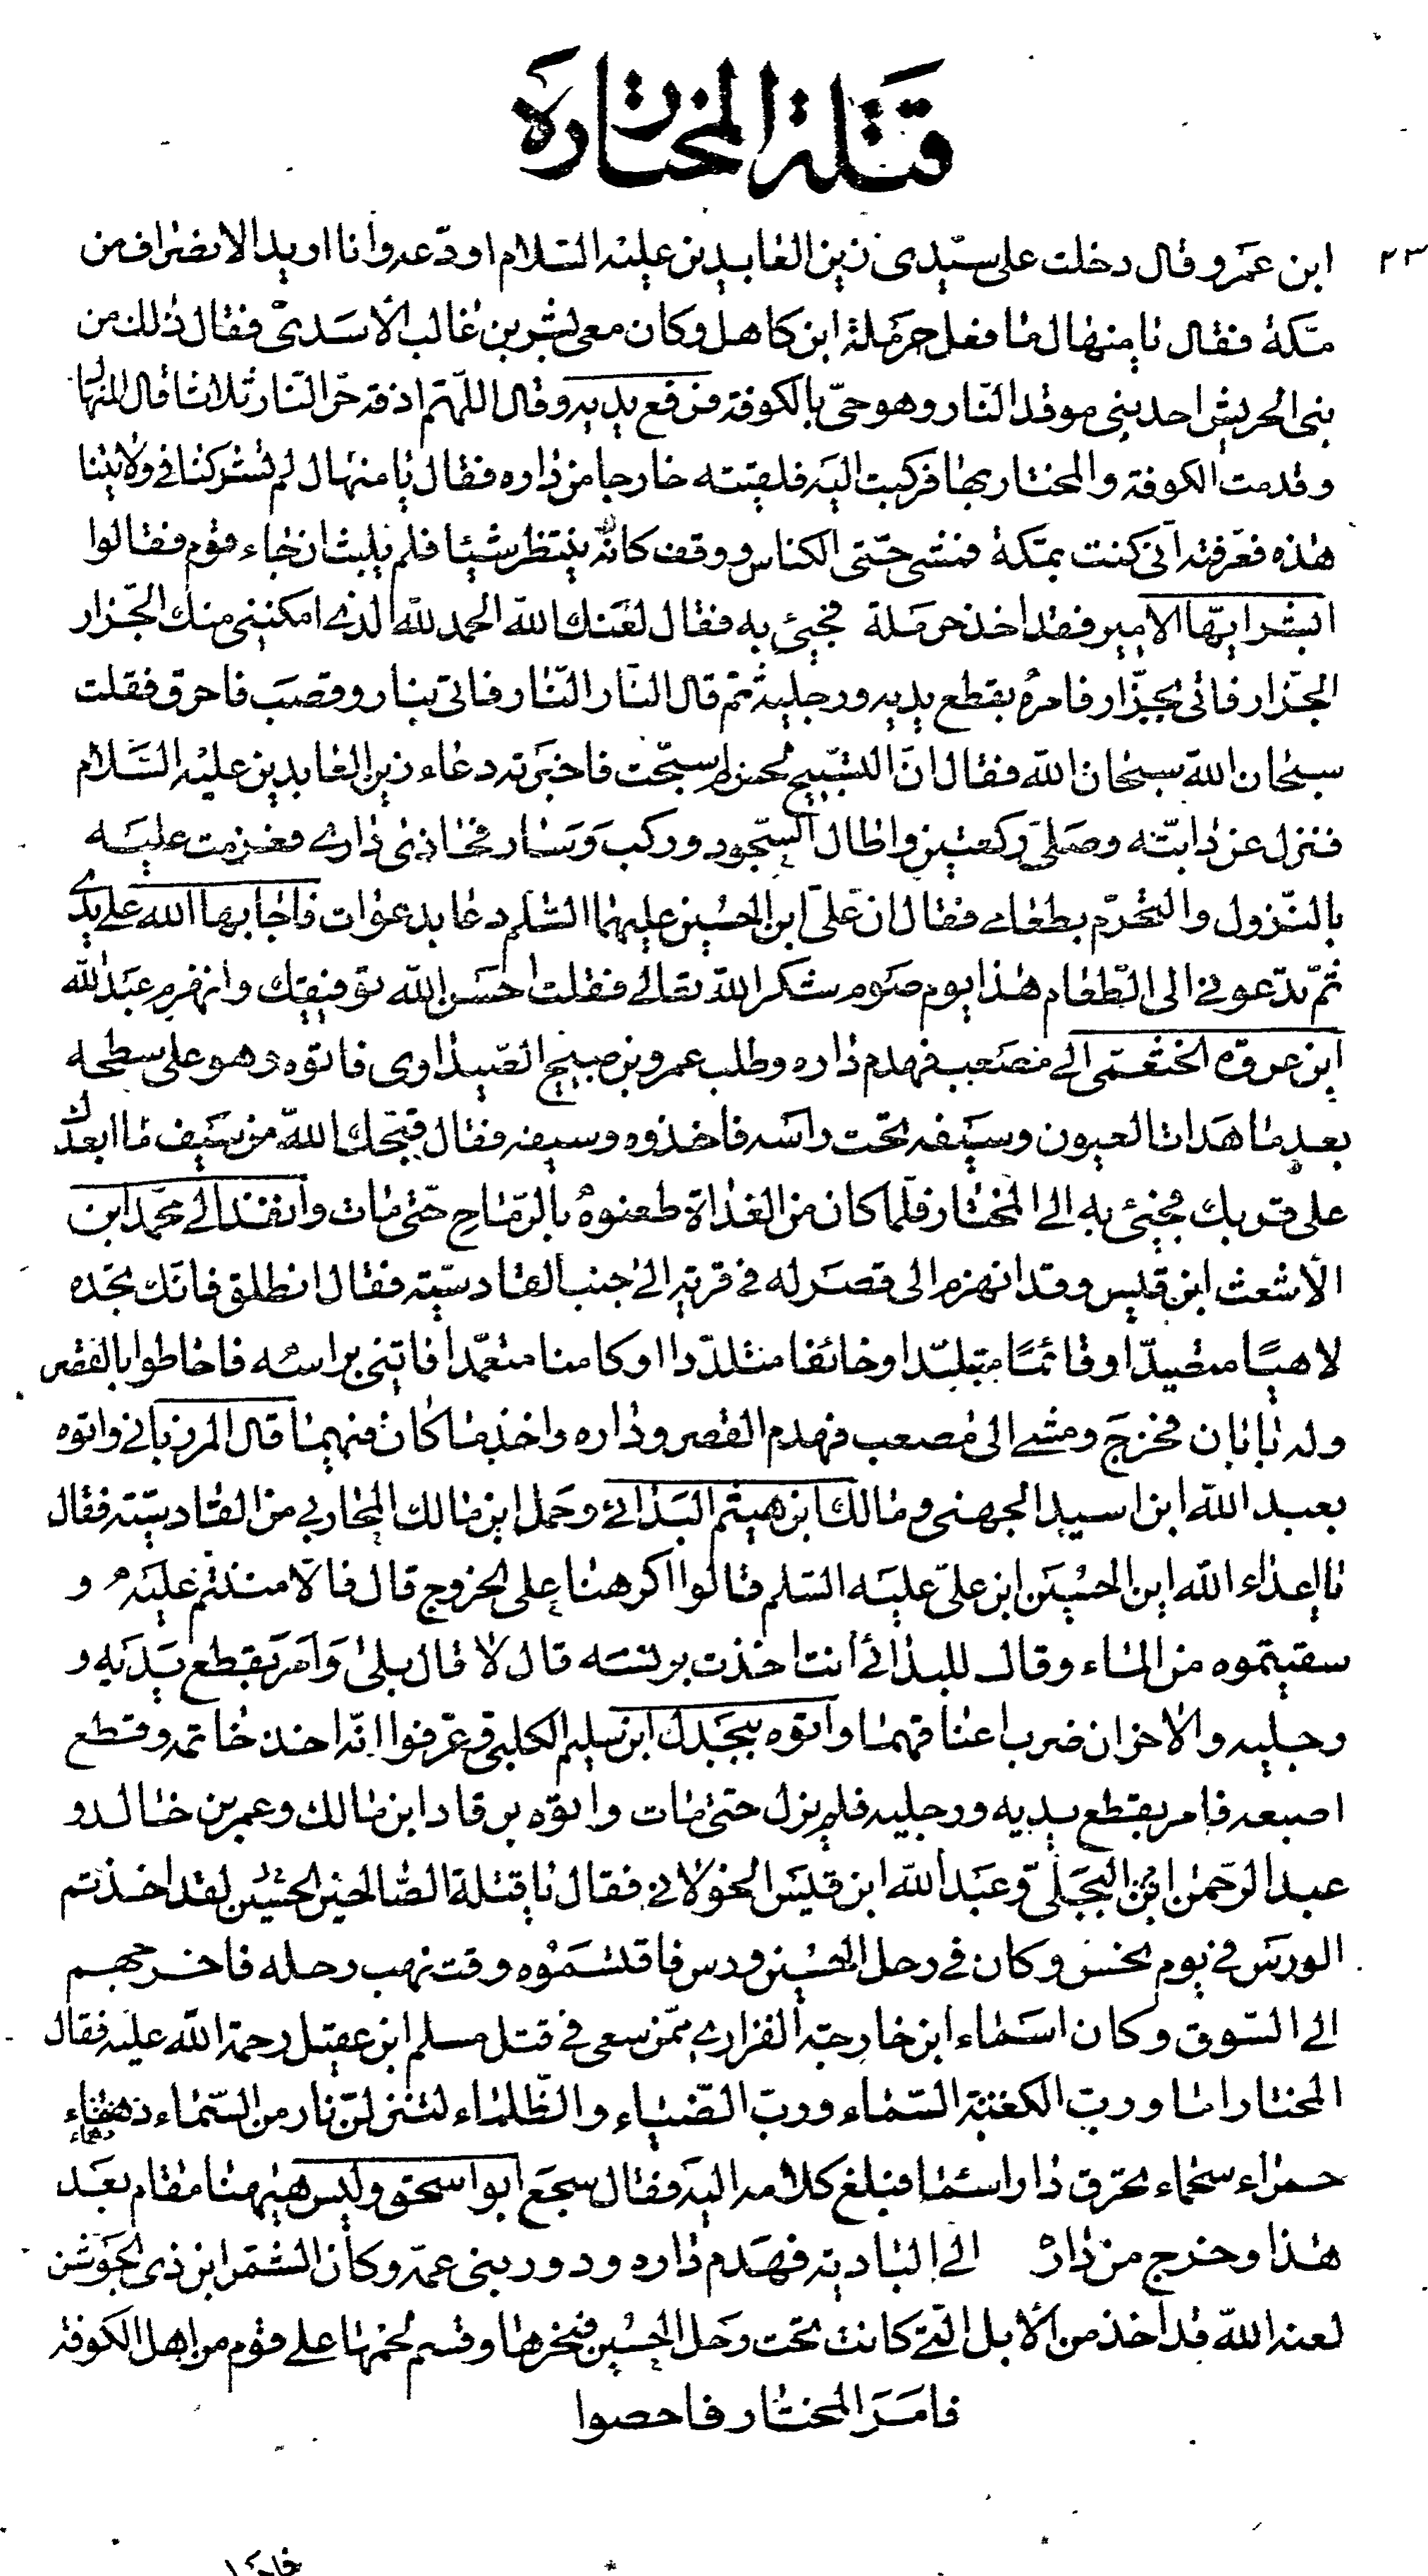 قتلة المختاره
٢٣
ابن عمرو قال دخلت على سيّدى زين العابدين عليه السّلام اودّعه وانا اريد الانصراف من
مكّة فقال يا منهال ما فعل حرملة ابن كاهل وكان معى بشر بن غالب الأسدىّ فقال ذلك من
بنى الحريش احد بنى موقد النّار وهو حىّ بالكوفة فرفع يديه وقال اللّهمّ اذقه حرّ النّار ثلاثا قال المنهال
وقدمت الكوفة والمختار بها فركبت اليه فلقيته خارجا من داره فقال يا منهال لم تشركنا فى ولايتنا
هذه فعرّفته انّى كنت بمكّة فمشى حتّى الكناس ووقف كانّه ينتظر شيئا فلم يلبث ان جاء قوم فقالوا
ابشر ايّها الامير فقد اخذ حرملة فجيئ به فقال لعنك الله الحمد لله الذى امكننى منك الجّزار
الجّزار فاتى بجّزار فامره بقطع يديه ورجليه ثمّ قال النّار النّار فاتى بنار وقصب فاحرق فقلت
سبحان الله سبحان الله فقال انّ التّسبيح لحسن لم سبّحت فاخبرته دعاء زين العابدين عليه السّلام
فنزل عن دابّته وصلّى ركعتين واطال السّجود وركب وسار فحاذى دارى فعزمت عليه
بالنّزول والتحرّم بطعامى فقال ان علىّ ابن الحسين عليهما السّلم دعا بدعوات فاجابها الله على يدى
ثمّ تدعونى الى الطّعام هذا يوم صوم شكرا لله تعالى فقلت احسن الله توفيقك وانهزم عبد الله
ابن عروة الخثعمّى الى مصعب فهدم داره وطلب عمرو بن صبيح الصّيداوى فاتوه وهو على سطحه
بعد ما هدات العيون وسيفه تحت راسه فاخذوه وسيفه فقال قبّحك الله من سيف ما ابعدك
على قربك فجيئ به الى المختار فلمّا كان من الغداة طعنوه بالرّماح حتّى مات وانفذ الى محمّد ابن
الأشعث ابن قيس وقد انهزم الى قصر له فى قرية الى جنب القادسيّة فقال انطلق فانّك تجده
لاهيًا متصيدّا او قائمًا متبلّدا او خائفا متلدّدا او كامنا متعمّدا فاتنى براسه فاحاطوا بالقصر
وله بابان فخرج ومشى الى مصعب فهدم القصر وداره واخذ ما كان فيهما قال المرزبانى واتوه
بعبد الله ابن اسيد الجهنى ومالك ابن هيثم البدائى وحمل ابن مالك المحاربى من القادسيّة فقال
يا اعداء الله اين الحسين ابن علىّ عليه السّلم قالوا اكرهنا على الخروج قال فالّا مننتم عليه و
سقيتموه من الماء وقال للبدائى انت اخذت برنسه قال لا قال بلى وامر بقطع يديه و
رجليه والاخران ضرب اعناقهما واتوه ببجدل ابن سليم الكلبى وعرّفوا انّه اخذ خاتمه وقطع
اصبعه فامر بقطع يديه ورجليه فلم يزل حتّى مات واتوه برقاد ابن مالك وعمر بن خالد و
عبد الرّحمن ابن البجلّى وعبد الله ابن قيس الخولانى فقال يا قتلة الصّالحين الحسين لقد اخذتم
الورس فى يوم نحس وكان فى رحل الحسين ورس فاقتسموه وقت نهب رحله فاخرجهم
الى السّوق وكان اسماء ابن خارجة الفزارى ممّن سعى فى قتل مسلم ابن عقيل رحمة الله عليه فقال
المختار اما وربّ السّماء وربّ الضّياء والظّلماء لتنزلنّ نار من السّماء دهماء
حمراء سحماء تحرق دار اسما فبلغ كلامه اليه فقال سجع ابو اسحق وليس هيهنا مقام بعد
هذا وخرج من داره الى البادية فهدم داره ودور بنى عمّه وكان الشّمر ابن ذى الجوشن
لعنه الله قد اخذ من الأبل الّتى كانت تحت رحل الحسين فنحرها وقسم لحمها على قوم من اهل الكوفة
فامر المختار فاحصوا